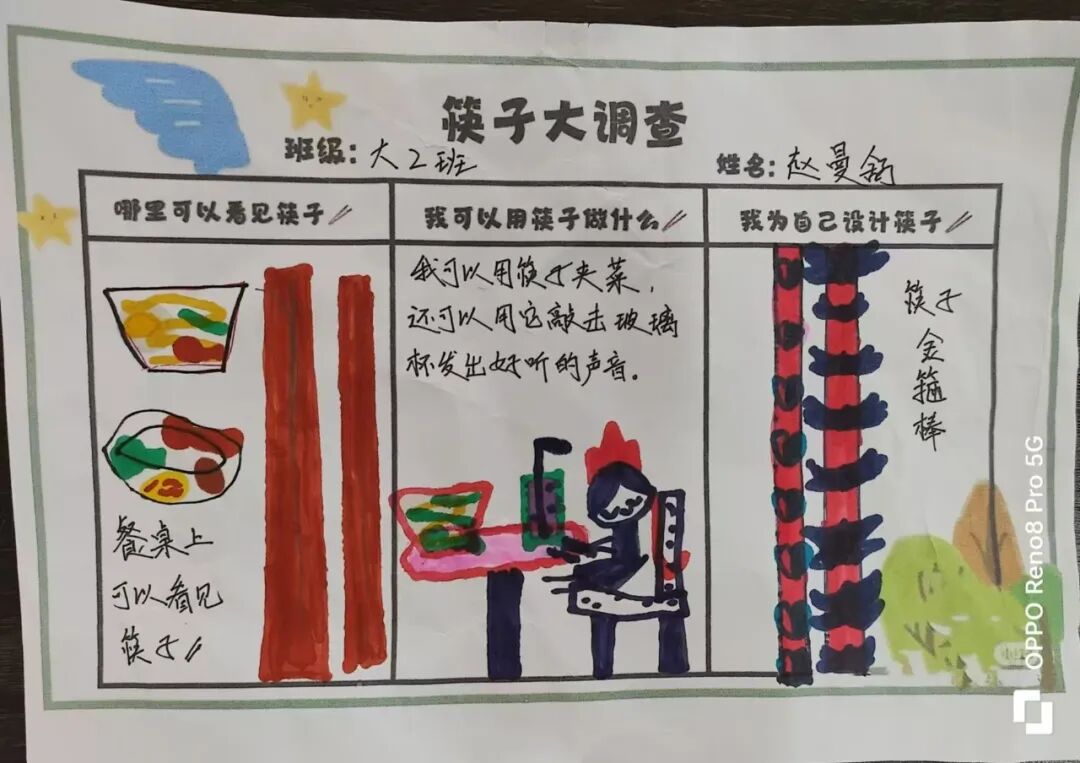 筷子大调查
班级：大2班
姓名：赵曼舒
哪里可以看见筷子
我可以用筷子做什么
我为自己设计筷子
餐桌上
可以看见
筷子
我可以用筷子夹菜，
还可以用它敲击玻璃
杯发出好听的声音。
筷子
金
箍
棒
OPPO Reno8 Pro 5G